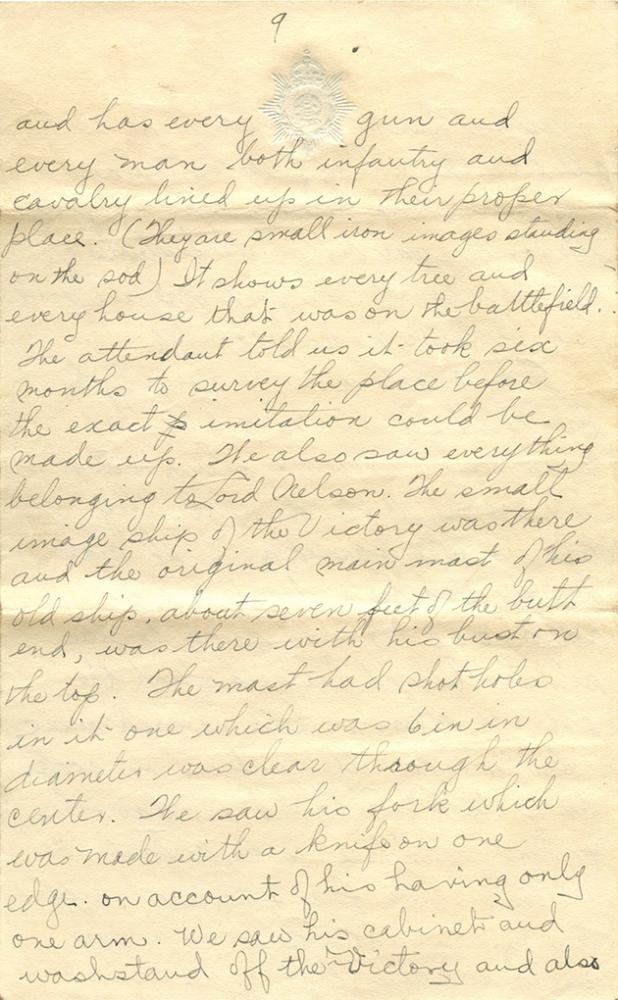 9
and has every gun and
every man both infantry and
cavalry lined up in their proper
place. (They are small iron images standing
on the sod) It shows every tree and
every house that was on the battlefield.
The attendant told us it took six
months to survey the place before
the exact imitation could be
made up. We also saw everything
belonging to Lord Nelson. The small
image ship of the Victory was there
and the original main mast of his
old ship, about seven feet of the butt
end, was there with his bust on
the top. The mast had shot holes
in it one which was 6 in in
diameter was clear through the
center. We saw his fork which
was made with a knife on one
edge. on account of his having only
one arm. We saw his cabinet and
washstand off the Victory and also